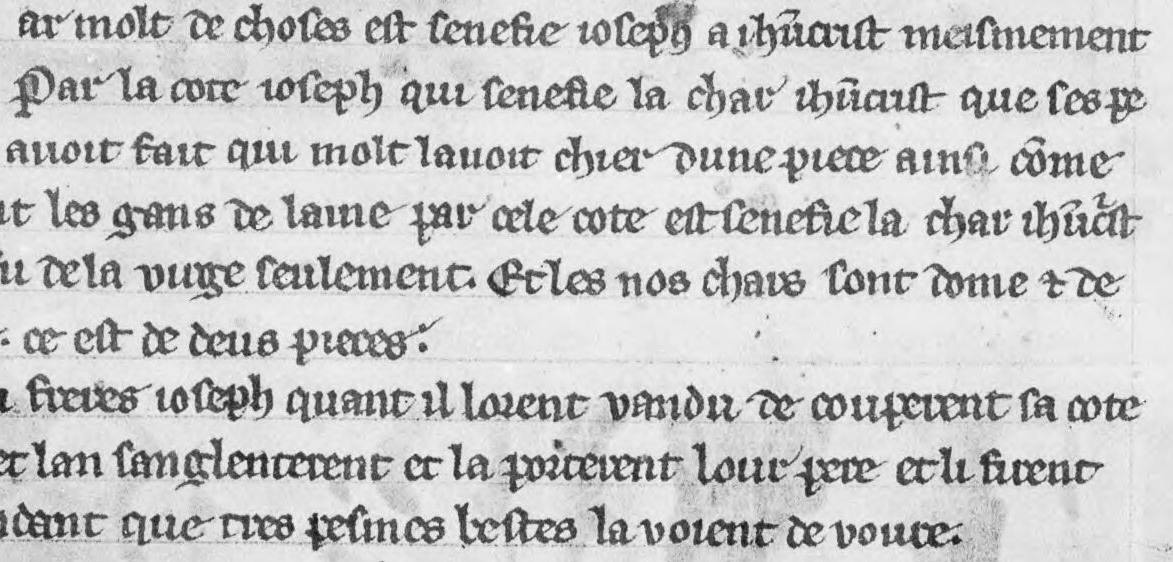 ar molt de choses est senefie ioseph a ih̄ucrist meismement
Par la cote ioseph qui senefie la char ih̄ucrist que ses pe
auoit fait qui molt lauoit chier dune piece ainsi cōme
les gans de laine par cele cote est senefie la char ih̄uc̄st
de la uirge seulement. Et les nos chars sont dome ⁊ de
ce est de deus pieces.
freres ioseph quant il lorent vandu de couperent sa cote
et lan sanglenterent et la porterent lour pere et li firent
que tres pesmes bestes la voient de voure.